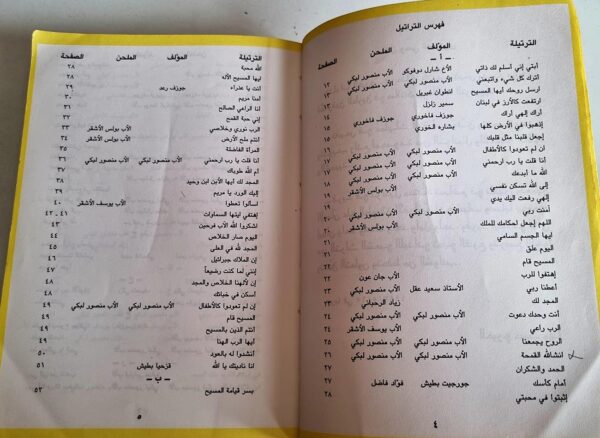 فهرس التراتيل
الترتيلة المؤلف الملحن الصفحة
ـ أ ـ
أبتي إني أسلم لك ذاتي الأخ شارل دوفوكو الأب منصور لبكي ١٢
اترك كل شيء واتبعني الأب منصور لبكي الأب منصور لبكي ١٣
ارسل روحك أيها المسيح انطوان غبريل
ارتفعت كالأرز في لبنان سمير زلزل ١٤
أراك إلهي أراك جوزف فاخوري جوزف فاخوري ١٤
إذهبوا في الأرض كلها بشاره الخوري ١٥
إجعل قلبنا مثل قلبك
أن لم تعودوا كالأطفال الأب منصور لبكي الأب منصور لبكي
أنا قلت يا رب ارحمني
الله ما أبدعك الأب بولس الأشقر
إلى الله تسكن نفسي
إلهي رفعت اليك يدي
آمنت ربي الأب منصور لبكي الأب منصور لبكي ٢٠
اللهم إجعل أحكامك للملك الأب بولس الأشقر ٢٠
أيها الجسم السامي
اليوم علق ٢٢
المسيح قام ٢٢
إهتفوا للرب الأب جان عون ٢٢
أعطنا ربي الأستاذ سعيد عقل الأب منصور لبكي ٢٣
المجد لك زياد الرحباني ٢٣
أنت وحدك دعوت الأب منصور لبكي الأب منصور لبكي ٢٤
الرب راعي الأب يوسف الأشقر ٢٤
الروح يجمعنا الأب منصور لبكي الأب منصور لبكي ٢٥
انشالله القمحة الأب منصور لبكي الأب منصور لبكي ٢٦
الحمد والشكران ٢٧
أمام كأسك جورجيت بطيش فؤاد فاضل ٢٧
إثبتوا في محبتي ٢٨
٤
الترتيلة المؤلف الملحن الصفحة
الله محبة ٢٨
أيها المسيح الأله ٢٨
أنت يا عذراء جوزف رعد ٢٩
أمنا مريم ٣٠
أنا الراعي الصالح ٣١
إني حبة القمح ٣٢
الرب نوري وخلاصي الأب بولس الأشقر ٣٣
انتم ملح الأرض الأب بولس الأشقر ٣٤
المرأة الفاضلة ٣٥
أنا قلت يا رب ارحمني الأب منصور لبكي الأب منصور لبكي ٣٦
أم الله طوباك ٣٧
المجد لك أيها الأبن ابن وحيد ٣٨
إليك الورد يا مريم ٣٩
اسألوا تعطوا الأب يوسف الأشقر ٤٠
إهتفي أيتها السماوات ٤١ ـ ٤٢
اشكروا الله الأب فرحين ٤٣
اليوم صار الخلاص ٤٤
المجد لله في العلى ٤٥
إن الملاك جبرائيل ٤٦
إنني لما كنت رضيعاً ٤٧
إن لألهنا الخلاص والمجد ٤٨
أسكن في خبائك ٤٨
إن لم تعودوا كالأطفال الأب منصور لبكي الأب منصور لبكي ٤٩
المسيح قام ٤٩
انتم الذين بالمسيح ٤٩
أيها الرب الهنا
أنشدوا له بالعود ٥٠
أنا ناديتك يا الله قزحيا بطيش ٥١
ـ ب ـ
بسر قيامة المسيح ٥٢
٥